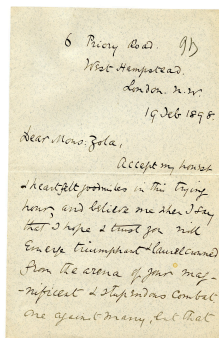 6 Priory Road.
West Hampstead.
London. N.W
19 Feb 1898
Dear Mons: Zola,
Accept my honest
& heartfelt good wishes in this trying
hour, and believe me when I say
that I hope & trust you will
Emerge triumphant & laurel crowned
from the arena of your mag-
-nificent & stupendous combat
one against many, but that